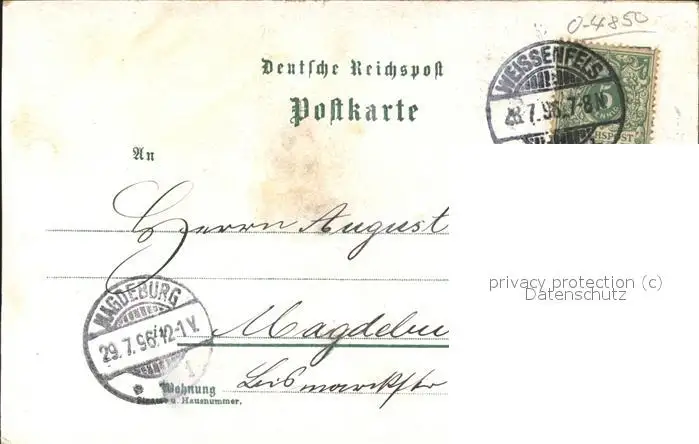 0-4850
Deutsche Reichspost
Postkarte
WEISSENFELS
28.7.96.7-8N.
5
An
Herrn August
privacy protection (c)
Datenschutz
MAGDEBURG
29.7.96.12-1V.
1
Magdebu
Bismarckstr
Wohnung
Strasse u. Hausnummer,